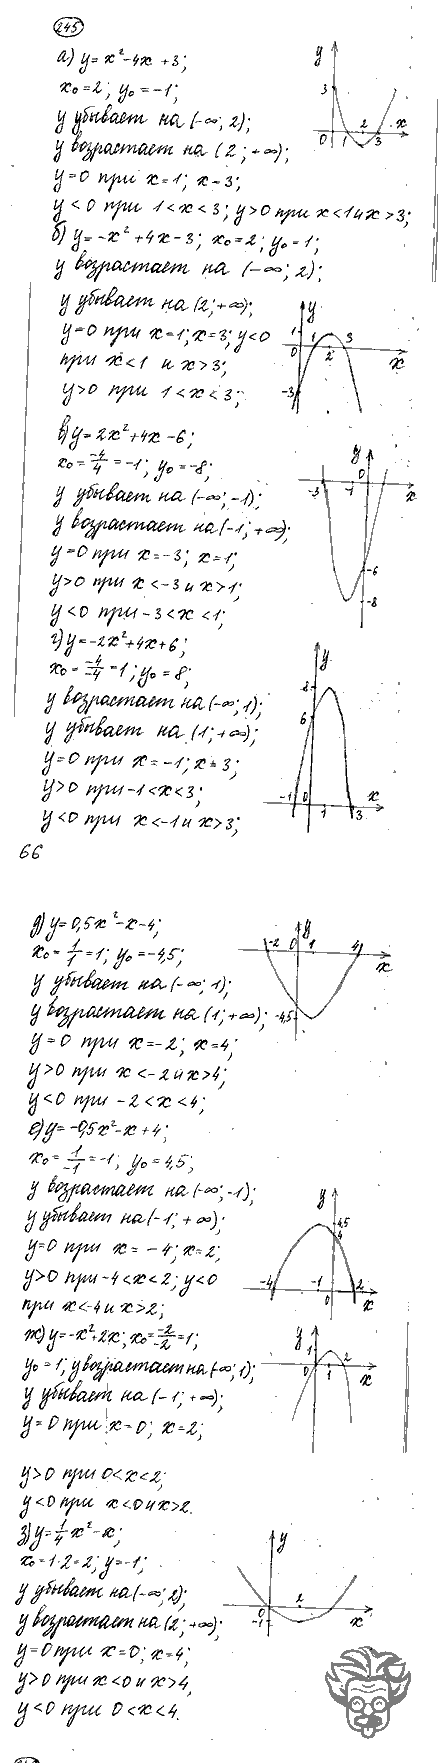 245
а) y = x² - 4x + 3;
x₀ = 2; y₀ = -1;
y убывает на (-∞; 2);
y возрастает на (2; +∞);
y = 0 при x = 1; x = 3;
y < 0 при 1 < x < 3; y > 0 при x < 1 и x > 3;
б) y = -x² + 4x - 3; x₀ = 2; y₀ = 1;
y возрастает на (-∞; 2);
y убывает на (2; +∞);
y = 0 при x = 1; x = 3; y < 0
при x < 1 и x > 3;
y > 0 при 1 < x < 3;
в) y = 2x² + 4x - 6;
x₀ = -4/4 = -1; y₀ = -8;
y убывает на (-∞; -1);
y возрастает на (-1; +∞);
y = 0 при x = -3; x = 1;
y > 0 при x < -3 и x > 1;
y < 0 при -3 < x < 1;
г) y = -2x² + 4x + 6;
x₀ = -4/-4 = 1; y₀ = 8;
y возрастает на (-∞; 1);
y убывает на (1; +∞);
y = 0 при x = -1; x = 3;
y > 0 при -1 < x < 3;
y < 0 при x < -1 и x > 3;
66
д) y = 0,5x² - x - 4;
x₀ = 1/1 = 1; y₀ = -4,5;
y убывает на (-∞; 1);
y возрастает на (1; +∞);
y = 0 при x = -2; x = 4;
y > 0 при x < -2 и x > 4;
y < 0 при -2 < x < 4;
е) y = -0,5x² - x + 4;
x₀ = 1/-1 = -1; y₀ = 4,5;
y возрастает на (-∞; -1);
y убывает на (-1; +∞);
y = 0 при x = -4; x = 2;
y > 0 при -4 < x < 2; y < 0
при x < -4 и x > 2;
ж) y = -x² + 2x; x₀ = -2/-2 = 1;
y₀ = 1; y возрастает на (-∞; 1);
y убывает на (-1; +∞);
y = 0 при x = 0; x = 2;
y > 0 при 0 < x < 2;
y < 0 при x < 0 и x > 2.
з) y = 1/4 x² - x;
x₀ = 1·2 = 2; y = -1;
y убывает на (-∞; 2);
y возрастает на (2; +∞);
y = 0 при x = 0; x = 4;
y > 0 при x < 0 и x > 4,
y < 0 при 0 < x < 4.